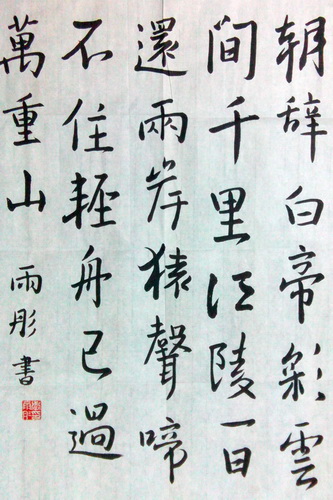 朝辞白帝彩雲
間千里江陵一日
還兩岸猿聲啼
不住輕舟已過
萬重山
雨彤書